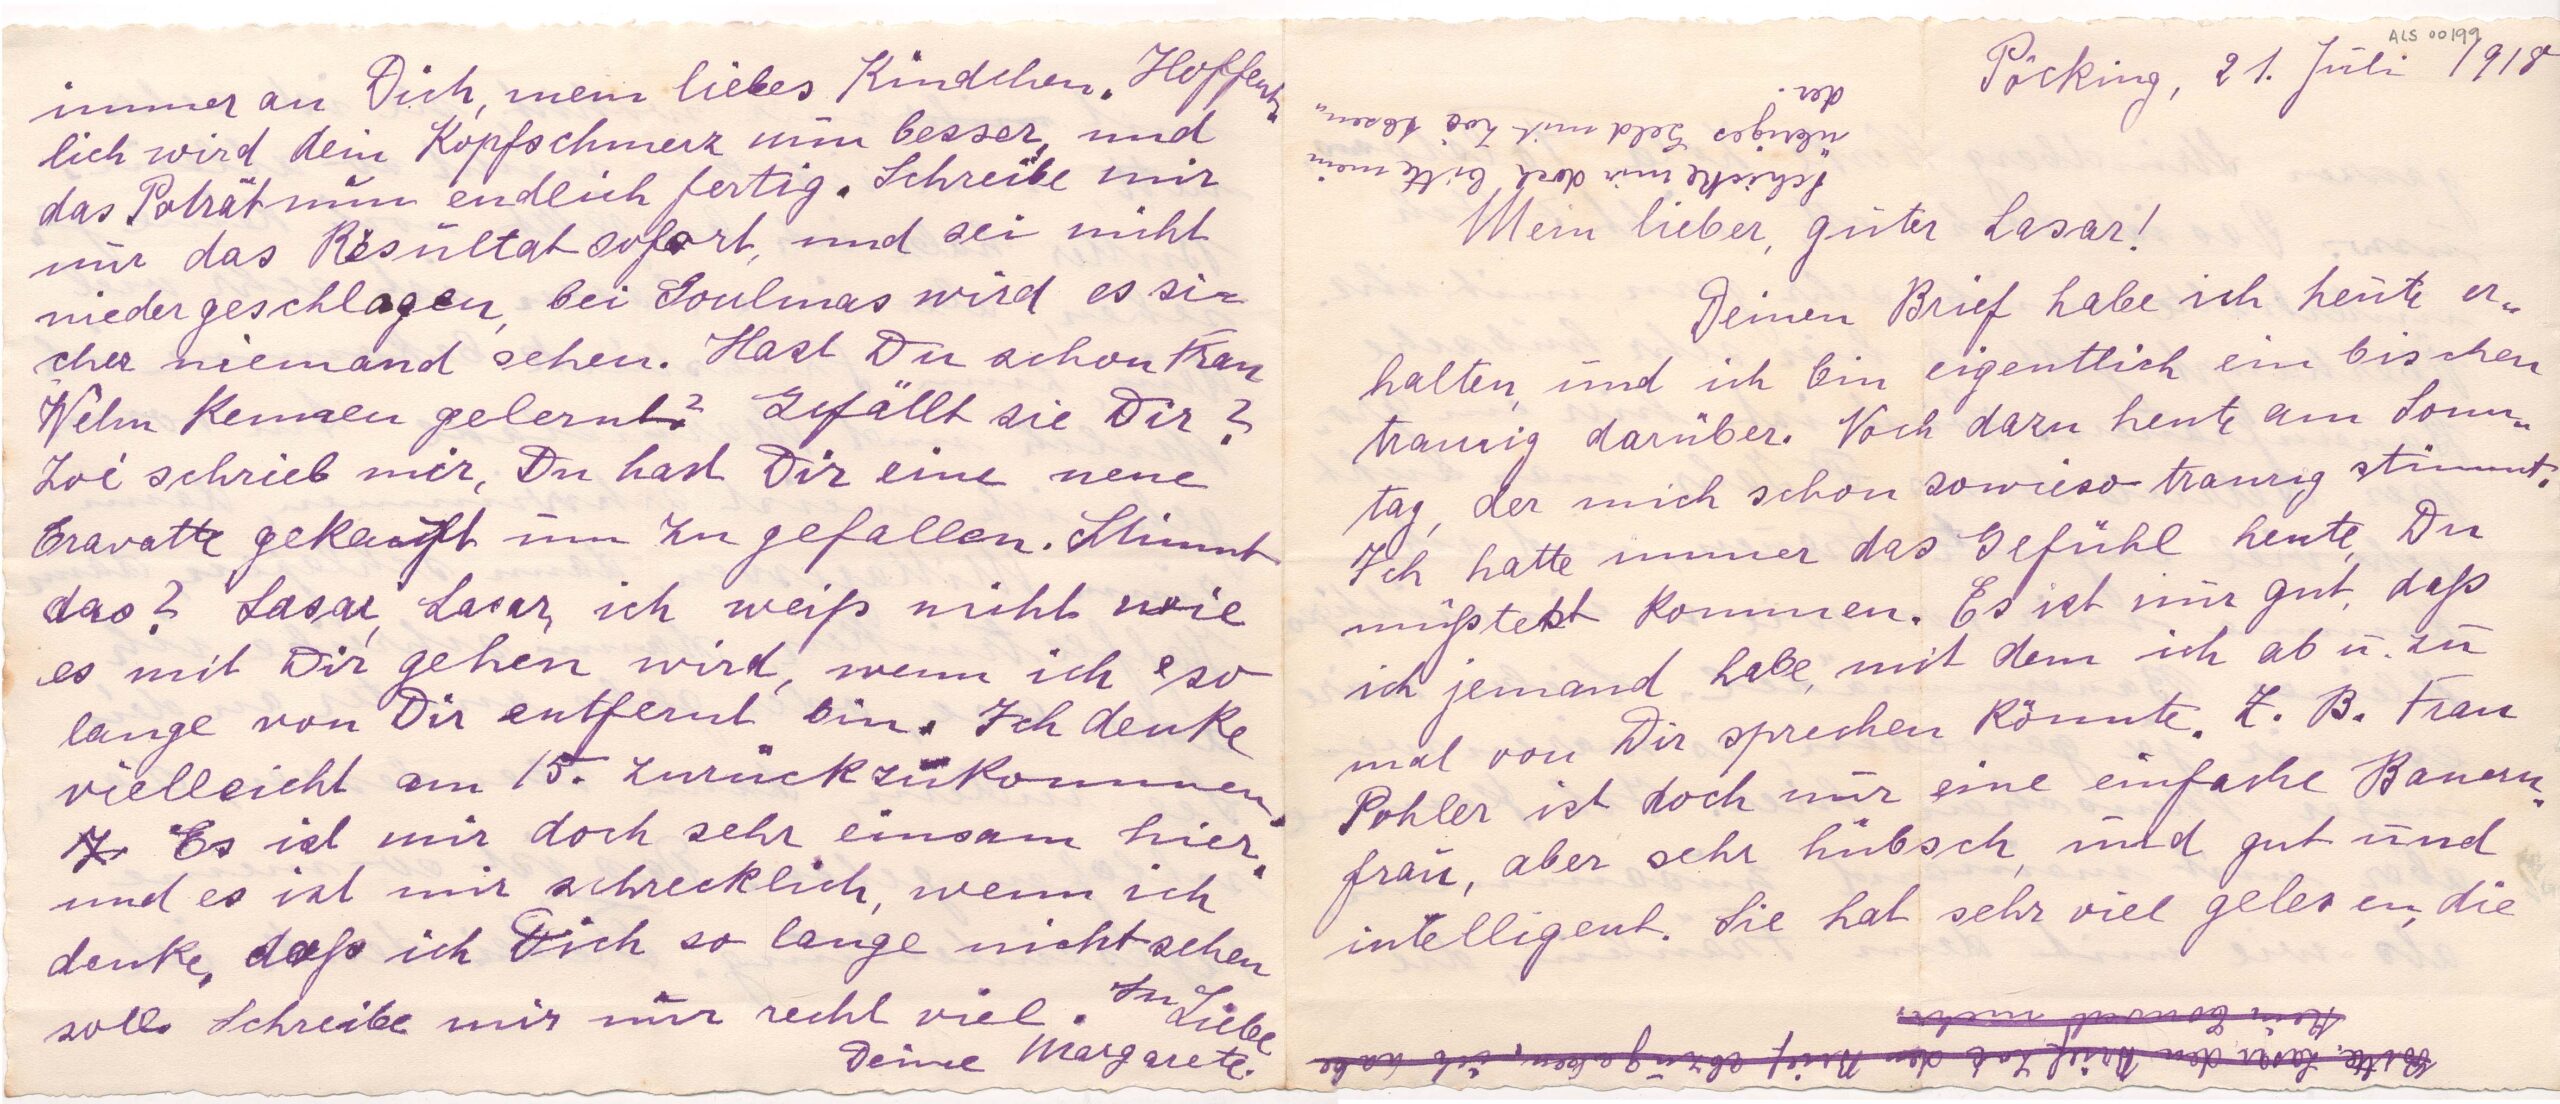 ALS 00199
Pöcking, 21. Juli 1918
Schicke mir doch bitte mein
übriges Geld mit Zoé
der.
Mein lieber, guter Lasar!
Deinen Brief habe ich heute er„
halten, und ich bin eigentlich ein bischen
traurig darüber. Noch dazu heute am Sonn„
tag, der mich schon sowieso traurig stimmt.
Ich hatte immer das Gefühl heute, Du
müßtest kommen. Es ist nur gut, daß
ich jemand habe, mit dem ich ab u. zu
mal von Dir sprechen könnte. Z. B. Frau
Pohler ist doch nur eine einfache Bauern„
frau, aber sehr hübsch, und gut und
intelligent. Sie hat sehr viel gelesen, die
Bitte, Lasar den Brief Zoé den Brief abzugeben, ich habe
kein Couvert mehr.
immer an Dich, mein liebes Kindchen. Hoffent„
lich wird dein Kopfschmerz nun besser, und
das Poträt nun endlich fertig. Schreibe mir
nur das Resultat sofort, und sei nicht
niedergeschlagen, bei Goulmas wird es si-
cher niemand sehen. Hast Du schon Frau
Wehn kennen gelernt? Gefällt sie Dir?
Zoé schrieb mir, Du hast Dir eine neue
Cravatte gekauft um zu gefallen. Stimmt
das? Lasar, Lasar, ich weiß nicht wie
es mit Dir gehen wird, wenn ich so
lange von Dir entfernt bin. Ich denke
vielleicht am 15. zurückzukommen.
Es ist mir doch sehr einsam hier.
und es ist mir schrecklich, wenn ich
denke, daß ich Dich so lange nicht sehen
soll. Schreibe mir nur recht viel. In Liebe
Deine Margarete.